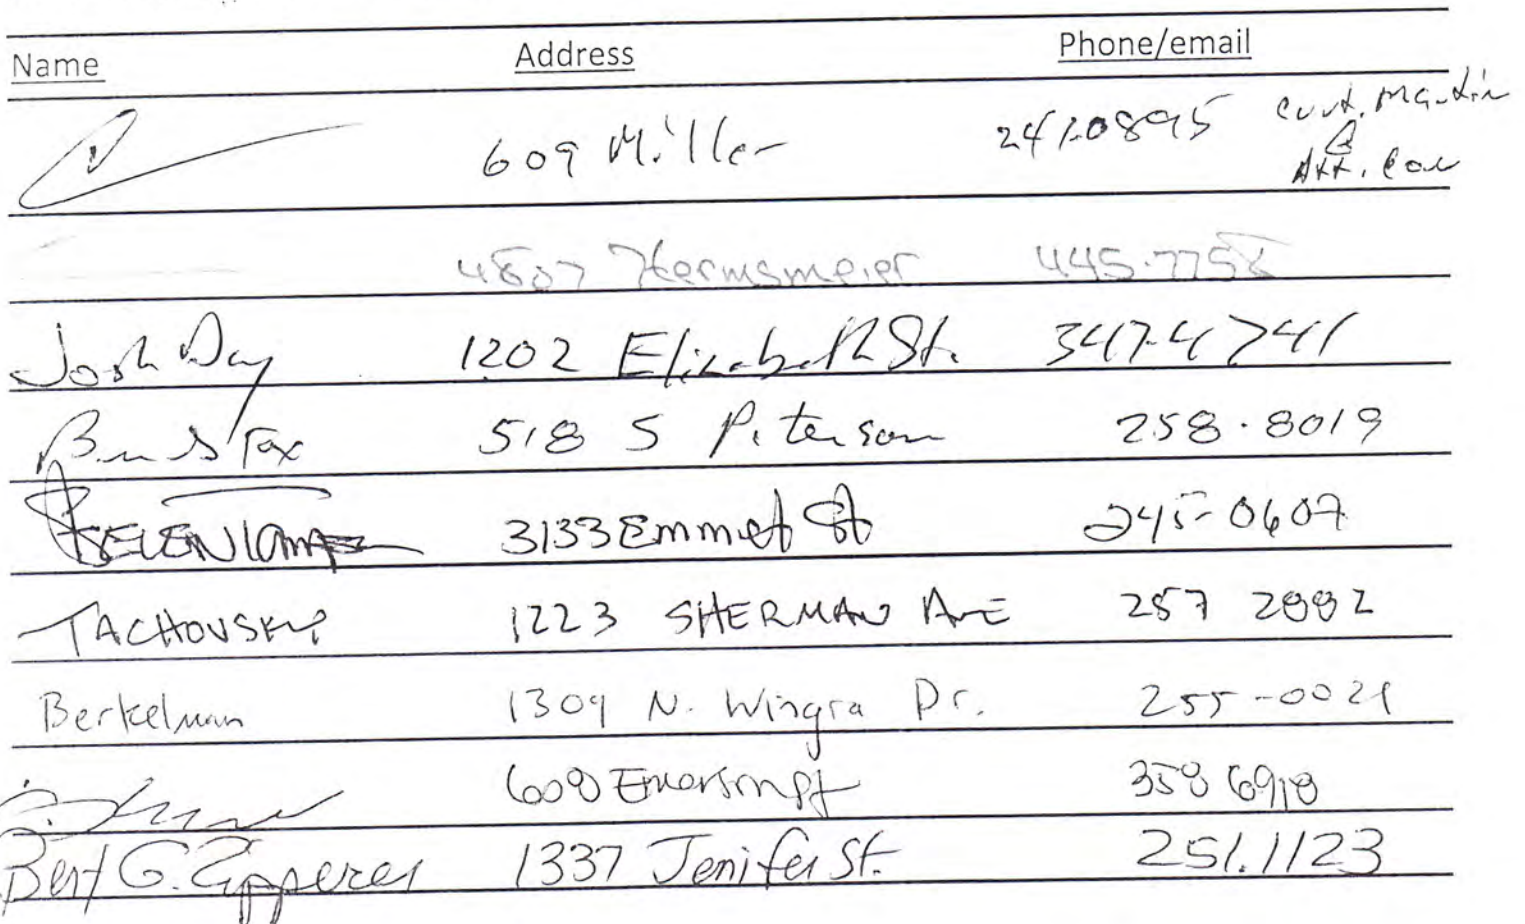 Name Address Phone/email
609 Miller 241-0895 curt.martin
@
Att.
4807 Hermsmeier 445-7758
Josh Day 1202 Elizabeth St. 347-4741
518 S Peterson 258-8019
3133 Emmet St 245-0607
TACHOVSKY 1223 SHERMAN AVE 257 2882
Berkelman 1309 N. Wingra Dr. 255-0021
608 358 6918
Bert G. 1337 Jenifer St. 251.1123